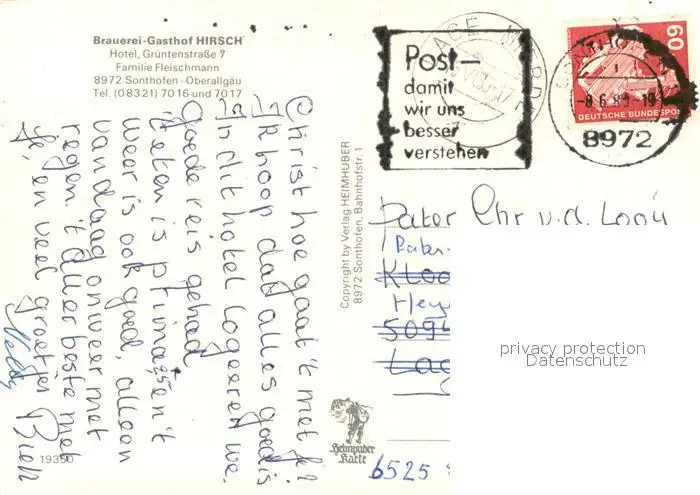 Brauerei-Gasthof HIRSCH
Hotel, Grüntenstraße 7
Familie Fleischmann
8972 Sonthofen - Oberallgäu
Tel. (08321) 7016 und 7017
Christ hoe gaat 't met je!
Ik hoop dat alles goed is
In dit hotel logeeren we.
goede reis gehad
't eten is prima en 't
weer is ook goed, alleen
vandaag onweer met
regen. 't aller beste met
je, en veel groetjes
Nelly
19350
Copyright by Verlag HEIMHUBER
8972 Sonthofen, Bahnhofstr. 1
Heimhuber
Karte
Post-
damit
wir uns
besser
verstehen
-8.6.8
8972
60
DEUTSCHE BUNDESPOST
Pater Chr v.d. Looij
Pater
Kloo
Hey
509
Laa
6525
privacy protection
Datenschutz